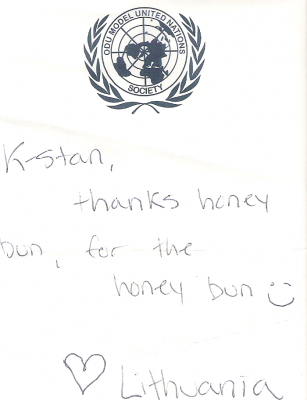 ODU MODEL UNITED NATIONS
SOCIETY
K-stan,
thanks honey
bun, for the
honey bun :)
♡ Lithuania